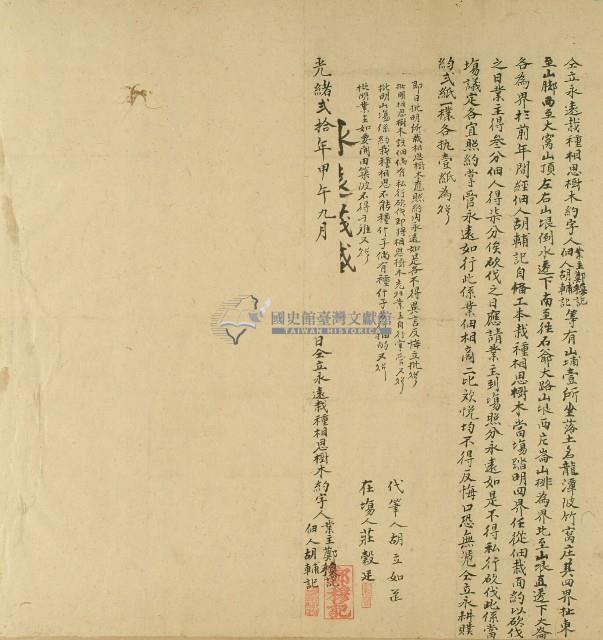 仝立永遠栽種相思樹木約字人業主鄭穆記佃人胡輔記等有山埔壹所坐落土名龍潭陂竹窩庄其四界址東
至山脚西至大窩山頂左右山埌倒水邊下南至往石爺大路山埌西片崙山排為界北至山埌直邊下大崙
各為界於前年間經佃人胡輔記自備工本栽種相思樹木當塲踏明四界任從佃栽面約以砍伐
之日業主得叁分佃人得柒分俟砍伐之日應請業主到塲照分永遠如是不得私行砍伐此係當
塲議定各宜照約掌管永遠如行此係業佃相商二比欢悦均不得反悔口恐無凴仝立永耕贌
約弍紙一樣各执壹紙為炤
即日批明所栽相思樹木應照約內永遠如是各不得異言反悔立批炤
批明相思樹木該佃倘有私行砍伐即將相思樹木充归業主自行掌管又炤
批明山塲係約栽種相思不能種什子倘有種什子 又炤
批明業主如要開田築陂不得刁难又炤
永遠茂盛
代筆人胡立如
在塲人莊毅廷
光緒弍拾年甲午九月 日仝立永遠栽種相思樹木約字人業主鄭穆記佃人胡輔記
鄭穆記
國史館臺灣文獻館
TAIWAN HISTORICA